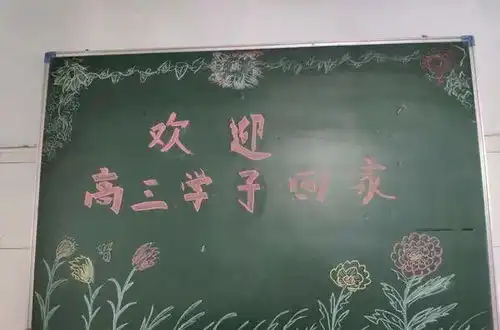 欢迎
高三学子回家